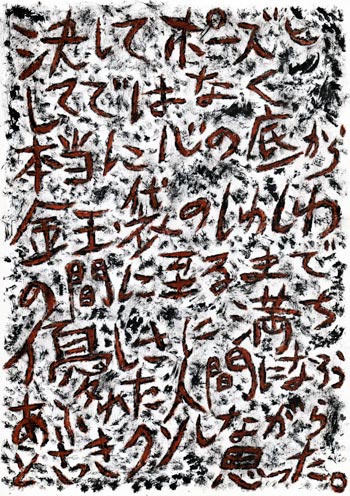 決してポーズと
してではなく
本当に心の底から
金玉袋のしわしわ
の間に至るまで
優しさに満ち
あふれた人間になろう
とさっきクソしながら
思った。